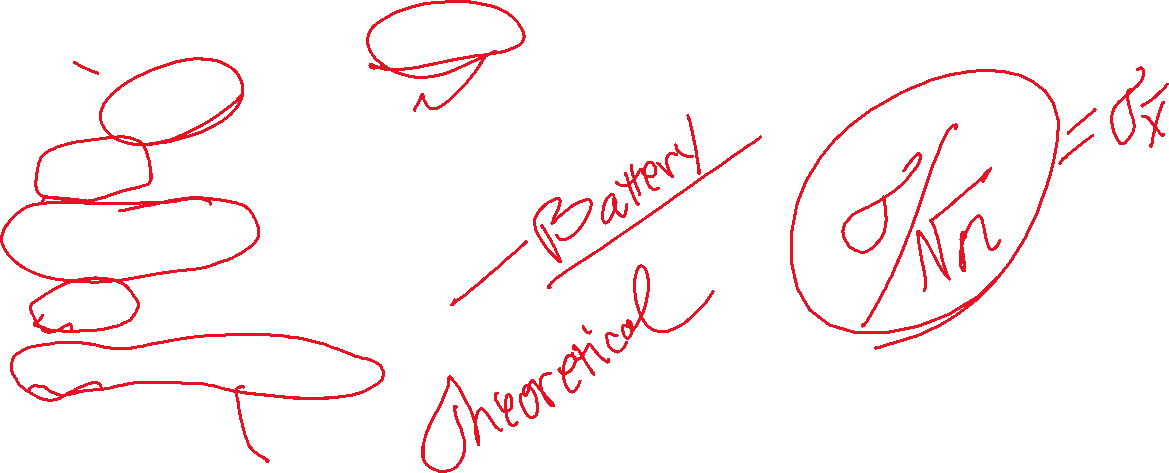 Battery
Theoretical
σ/√n = σx̄